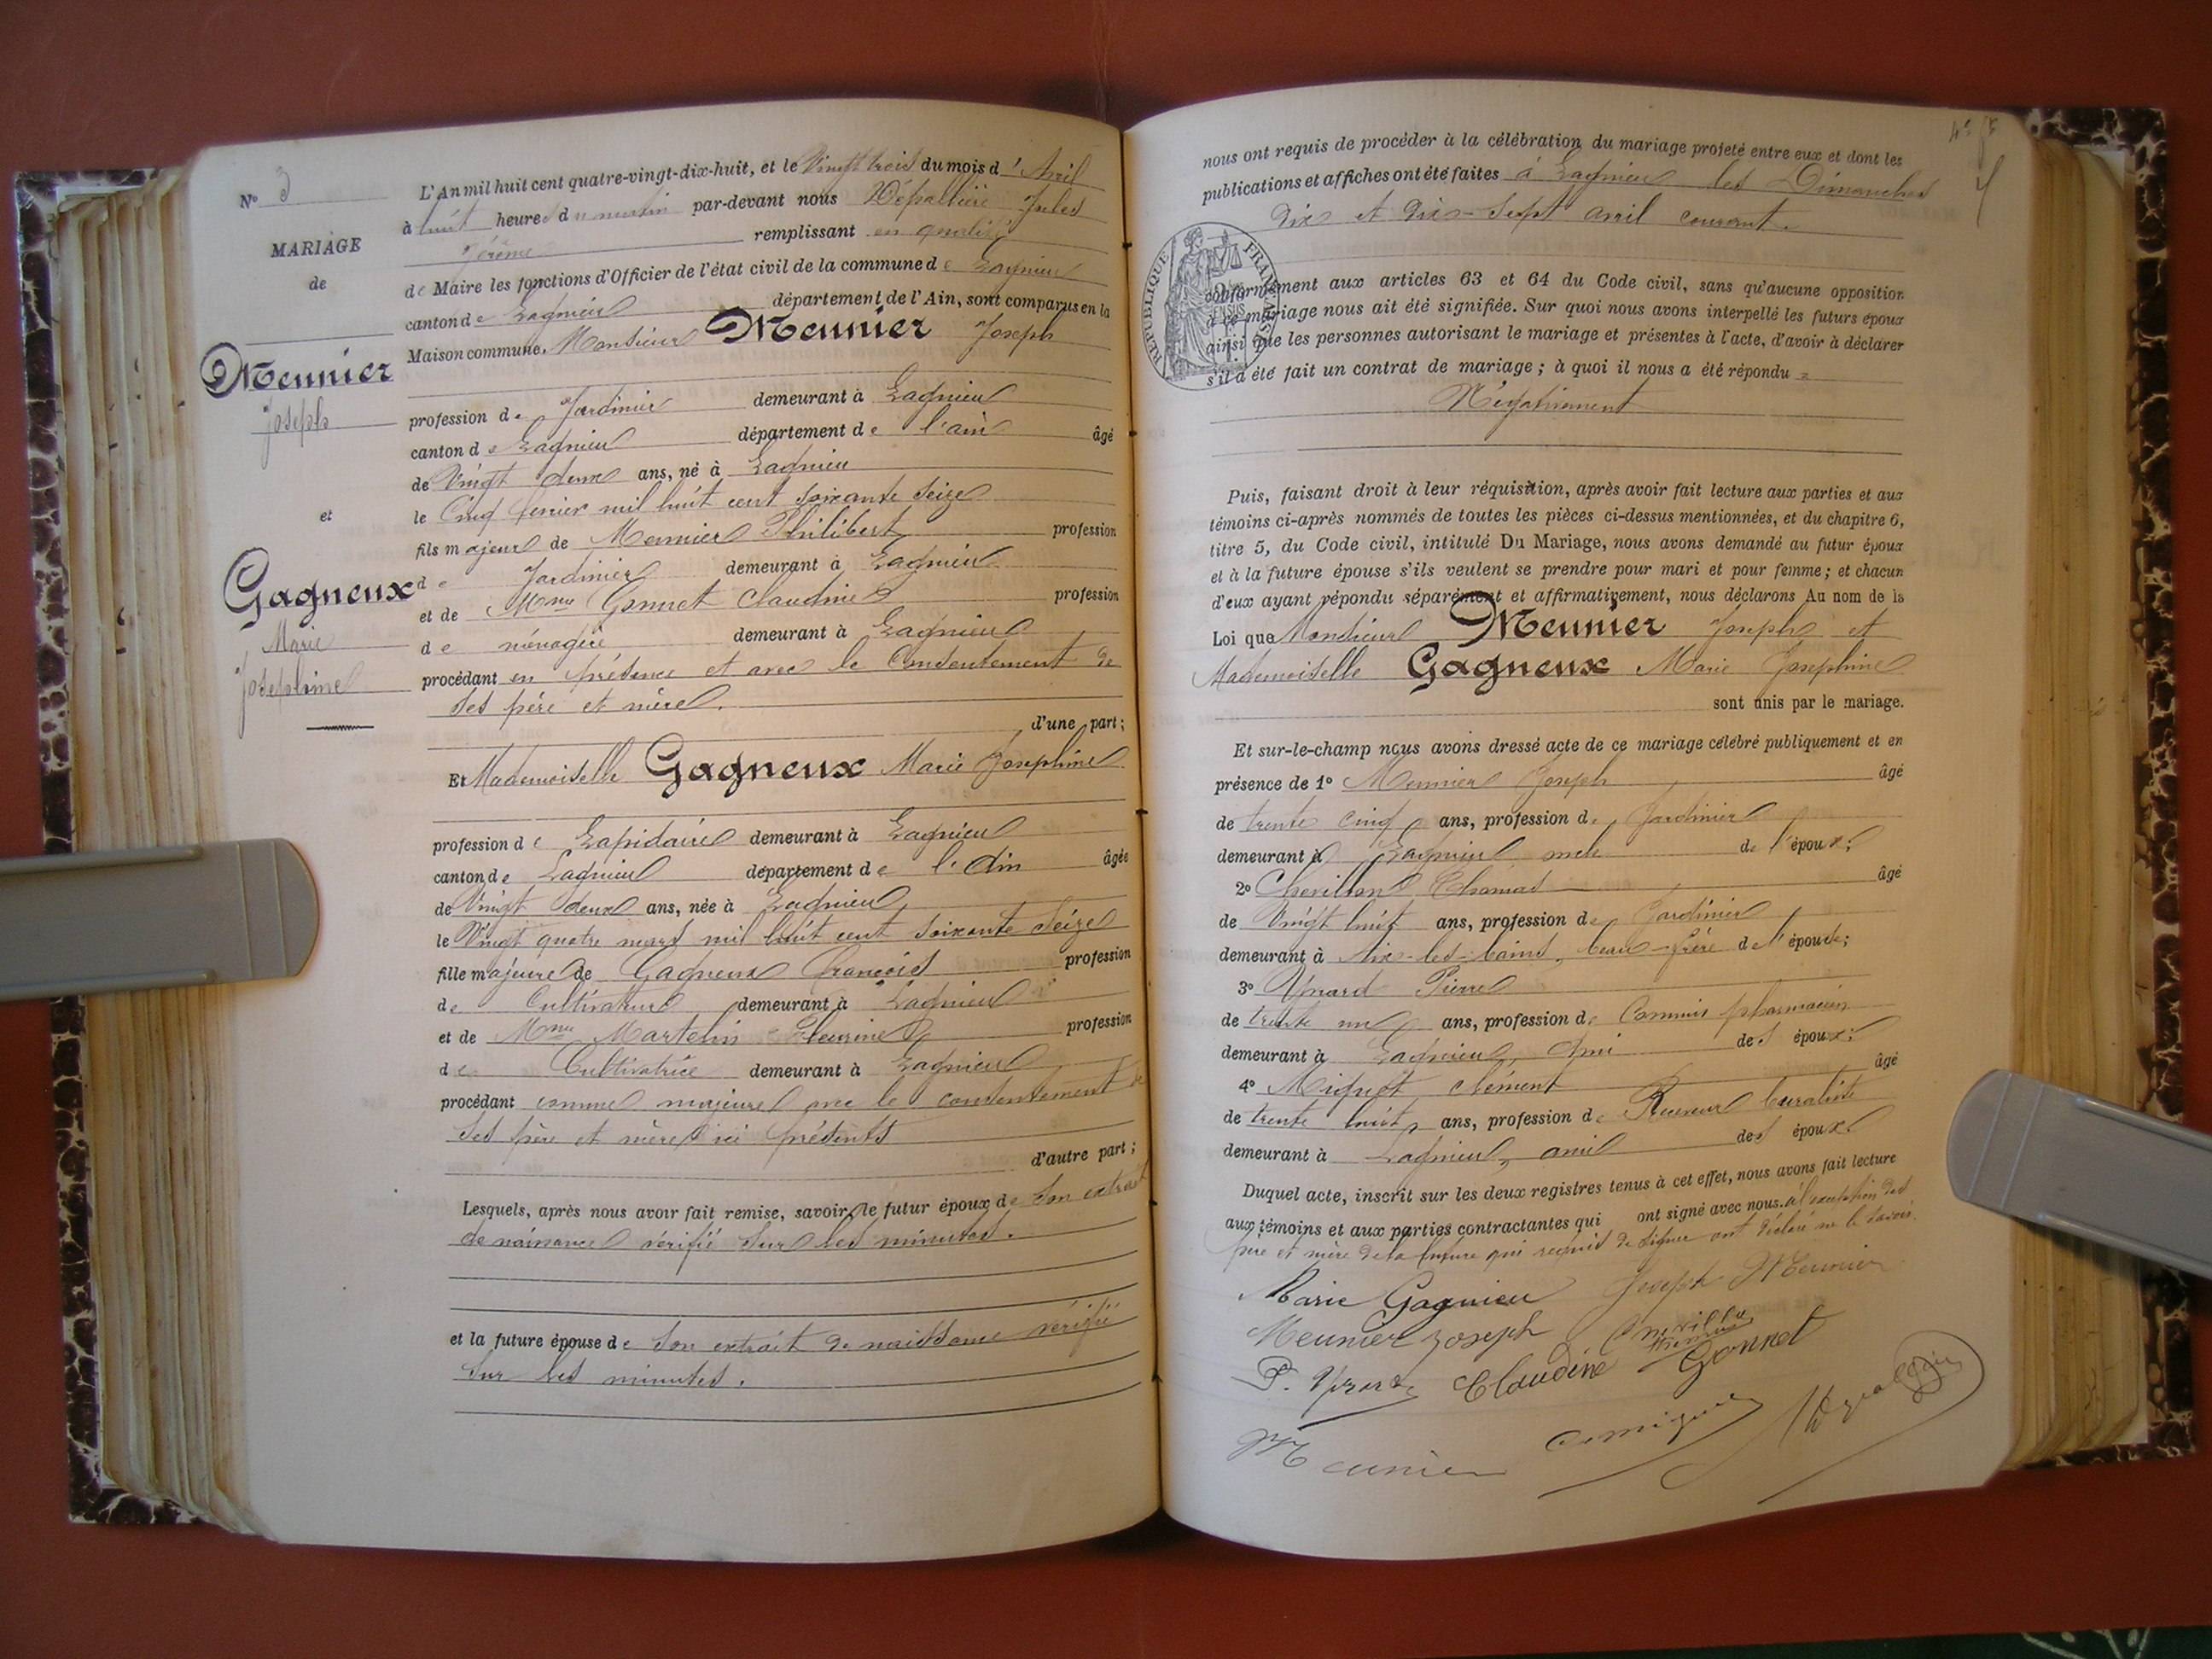 N° 3
MARIAGE
de
Meunier
Joseph
et
Gagneux
Marie
Josephine
L'An mil huit cent quatre-vingt-dix-huit, et le Vingt trois du mois d'Avril
à huit heures du matin par-devant nous Dépallière Jules
Jérôme remplissant en qualité
de Maire les fonctions d'Officier de l'état civil de la commune de Lagnieu
canton de Lagnieu département de l'Ain, sont comparus en la
Maison commune, Monsieur Meunier Joseph
profession de Jardinier demeurant à Lagnieu
canton de Lagnieu département de l'ain âgé
de Vingt deux ans, né à Lagnieu
le Cinq février mil huit cent soixante seize
fils majeur de Meunier Philibert profession
de Jardinier demeurant à Lagnieu
et de Mme Gonnet Claudine profession
de ménagère demeurant à Lagnieu
procédant en présence et avec le consentement de
ses père et mère.
d'une part;
Et Mademoiselle Gagneux Marie Josephine
profession de Lapidaire demeurant à Lagnieu
canton de Lagnieu département de l'Ain âgée
de Vingt deux ans, née à Lagnieu
le Vingt quatre mars mil huit cent soixante seize
fille majeure de Gagneux François profession
de Cultivateur demeurant à Lagnieu
et de Mme Martelin Fleurine profession
de Cultivatrice demeurant à Lagnieu
procédant comme majeure avec le consentement de
ses père et mère ici présents
d'autre part;
Lesquels, après nous avoir fait remise, savoir, le futur époux de son extrait
de naissance vérifié sur les minutes.
et la future épouse de son extrait de naissance vérifié
sur les minutes.
nous ont requis de procéder à la célébration du mariage projeté entre eux et dont les
publications et affiches ont été faites à Lagnieu les Dimanches
dix et dix-sept avril courant.
RÉPUBLIQUE FRANÇAISE
conformément aux articles 63 et 64 du Code civil, sans qu'aucune opposition
à ce mariage nous ait été signifiée. Sur quoi nous avons interpellé les futurs époux
ainsi que les personnes autorisant le mariage et présentes à l'acte, d'avoir à déclarer
s'il a été fait un contrat de mariage; à quoi il nous a été répondu =
Négativement
Puis, faisant droit à leur réquisition, après avoir fait lecture aux parties et aux
témoins ci-après nommés de toutes les pièces ci-dessus mentionnées, et du chapitre 6,
titre 5, du Code civil, intitulé Du Mariage, nous avons demandé au futur époux
et à la future épouse s'ils veulent se prendre pour mari et pour femme; et chacun
d'eux ayant répondu séparément et affirmativement, nous déclarons Au nom de la
Loi que Monsieur Meunier Joseph et
Mademoiselle Gagneux Marie Josephine
sont unis par le mariage.
Et sur-le-champ nous avons dressé acte de ce mariage célébré publiquement et en
présence de 1° Meunier Joseph âgé
de trente cinq ans, profession de Jardinier
demeurant à Lagnieu oncle de l'époux;
2° Chevillon Thomas âgé
de Vingt huit ans, profession de Jardinier
demeurant à Aix-les-bains, beau-frère de l'épouse;
3° Ynard Pierre
de trente un ans, profession de Commis pharmacien
demeurant à Lagnieu, ami des époux;
4° Miquet Clément âgé
de trente huit ans, profession de Receveur buraliste
demeurant à Lagnieu, ami des époux
Duquel acte, inscrit sur les deux registres tenus à cet effet, nous avons fait lecture
aux témoins et aux parties contractantes qui ont signé avec nous. à l'exception des
père et mère de la future qui requis de signer ont déclaré ne le savoir.
Marie Gagnieu Joseph Meunier
Meunier Joseph
P. Ynard Claudine Gonnet
Meunier